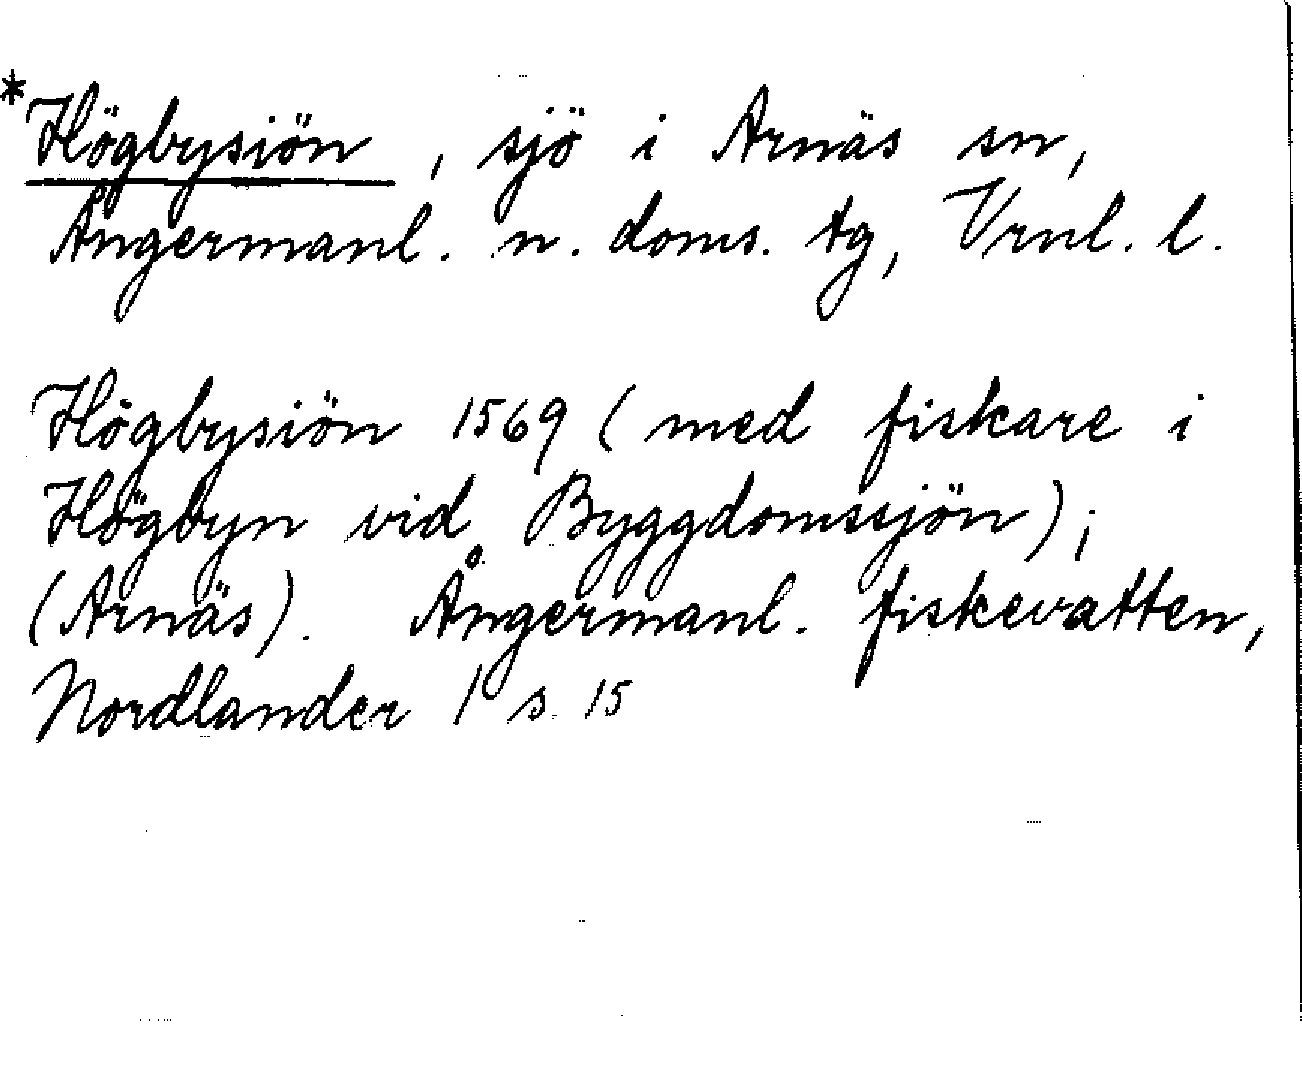 *Högbysiön, sjö i Arnäs sn,
Ångermanl. n. doms. tg, Vrnl. l.
Högbysiön 1569 (med fiskare i
Högbyn vid Byggdomssjön);
(Arnäs). Ångermanl. fiskevatten,
Nordlander 1 s. 15